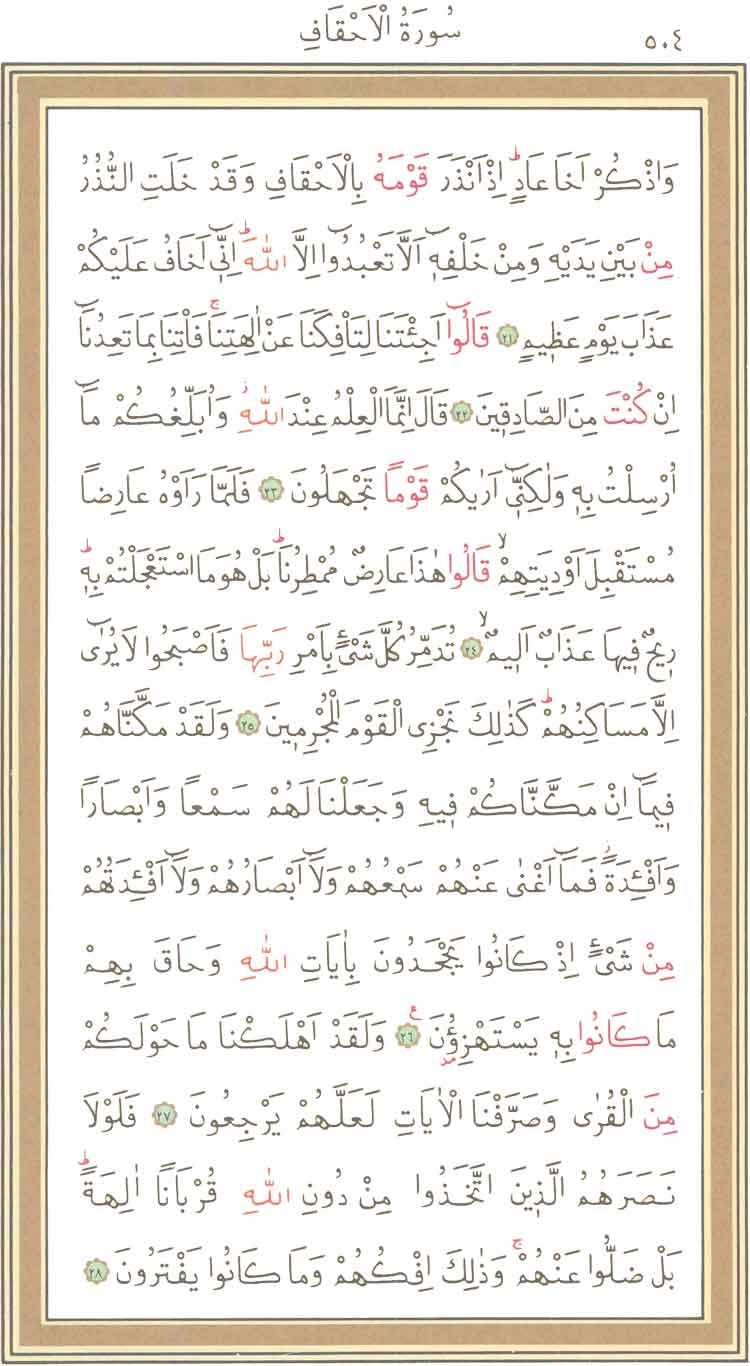 سُورَةُ الْاَحْقَافِ ٥٠٤
وَاذْكُرْ اَخَا عَادٍۜ اِذْ اَنْذَرَ قَوْمَهُ بِالْاَحْقَافِ وَقَدْ خَلَتِ النُّذُرُ
مِنْ بَيْنِ يَدَيْهِ وَمِنْ خَلْفِه۪ٓ اَلَّا تَعْبُدُٓوا اِلَّا اللّٰهَۜ اِنّ۪ٓي اَخَافُ عَلَيْكُمْ
عَذَابَ يَوْمٍ عَظ۪يمٍ ﴿٢١﴾ قَالُٓوا اَجِئْتَنَا لِتَأْفِكَنَا عَنْ اٰلِهَتِنَاۚ فَأْتِنَا بِمَا تَعِدُنَٓا
اِنْ كُنْتَ مِنَ الصَّادِق۪ينَ ﴿٢٢﴾ قَالَ اِنَّمَا الْعِلْمُ عِنْدَ اللّٰهِۘ وَاُبَلِّغُكُمْ مَٓا
اُرْسِلْتُ بِه۪ وَلٰكِنّ۪ٓي اَرٰيكُمْ قَوْماً تَجْهَلُونَ ﴿٢٣﴾ فَلَمَّا رَاَوْهُ عَارِضاً
مُسْتَقْبِلَ اَوْدِيَتِهِمْۙ قَالُوا هٰذَا عَارِضٌ مُمْطِرُنَاۜ بَلْ هُوَ مَا اسْتَعْجَلْتُمْ بِه۪ۜ
ر۪يحٌ ف۪يهَا عَذَابٌ اَل۪يمٌۙ ﴿٢٤﴾ تُدَمِّرُ كُلَّ شَيْءٍ بِاَمْرِ رَبِّهَا فَاَصْبَحُوا لَا يُرٰٓى
اِلَّا مَسَاكِنُهُمْۜ كَذٰلِكَ نَجْزِي الْقَوْمَ الْمُجْرِم۪ينَ ﴿٢٥﴾ وَلَقَدْ مَكَّنَّاهُمْ
ف۪يمَٓا اِنْ مَكَّنَّاكُمْ ف۪يهِ وَجَعَلْنَا لَهُمْ سَمْعاً وَاَبْصَاراً
وَاَفْـِٔدَةًۘ فَمَٓا اَغْنٰى عَنْهُمْ سَمْعُهُمْ وَلَٓا اَبْصَارُهُمْ وَلَٓا اَفْـِٔدَتُهُمْ
مِنْ شَيْءٍ اِذْ كَانُوا يَجْحَدُونَ بِاٰيَاتِ اللّٰهِ وَحَاقَ بِهِمْ
مَا كَانُوا بِه۪ يَسْتَهْزِؤُ۫نَ ﴿٢٦﴾ وَلَقَدْ اَهْلَكْنَا مَا حَوْلَكُمْ
مِنَ الْقُرٰى وَصَرَّفْنَا الْاٰيَاتِ لَعَلَّهُمْ يَرْجِعُونَ ﴿٢٧﴾ فَلَوْلَا
نَصَرَهُمُ الَّذ۪ينَ اتَّخَذُوا مِنْ دُونِ اللّٰهِ قُرْبَاناً اٰلِهَةًۜ
بَلْ ضَلُّوا عَنْهُمْۚ وَذٰلِكَ اِفْكُهُمْ وَمَا كَانُوا يَفْتَرُونَ ﴿٢٨﴾